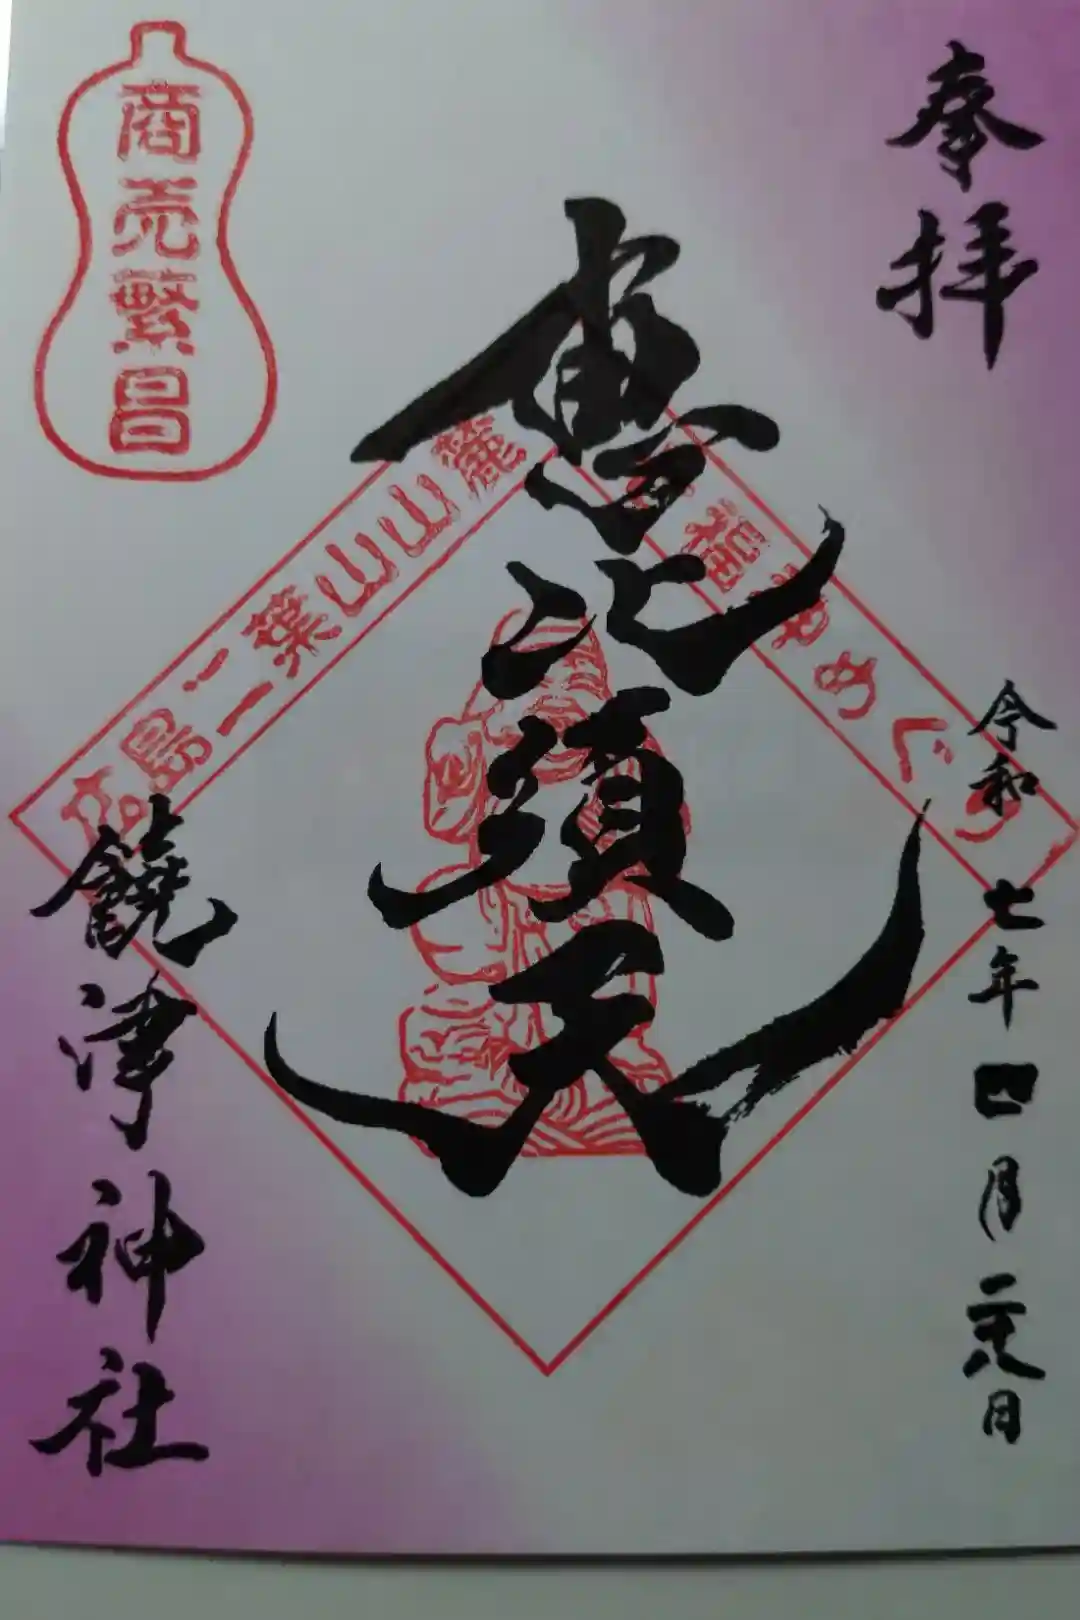 奉拝
令和七年四月二十八日
恵比須天
福やめぐり
広島二葉山山麓
商売繁昌
饒津神社